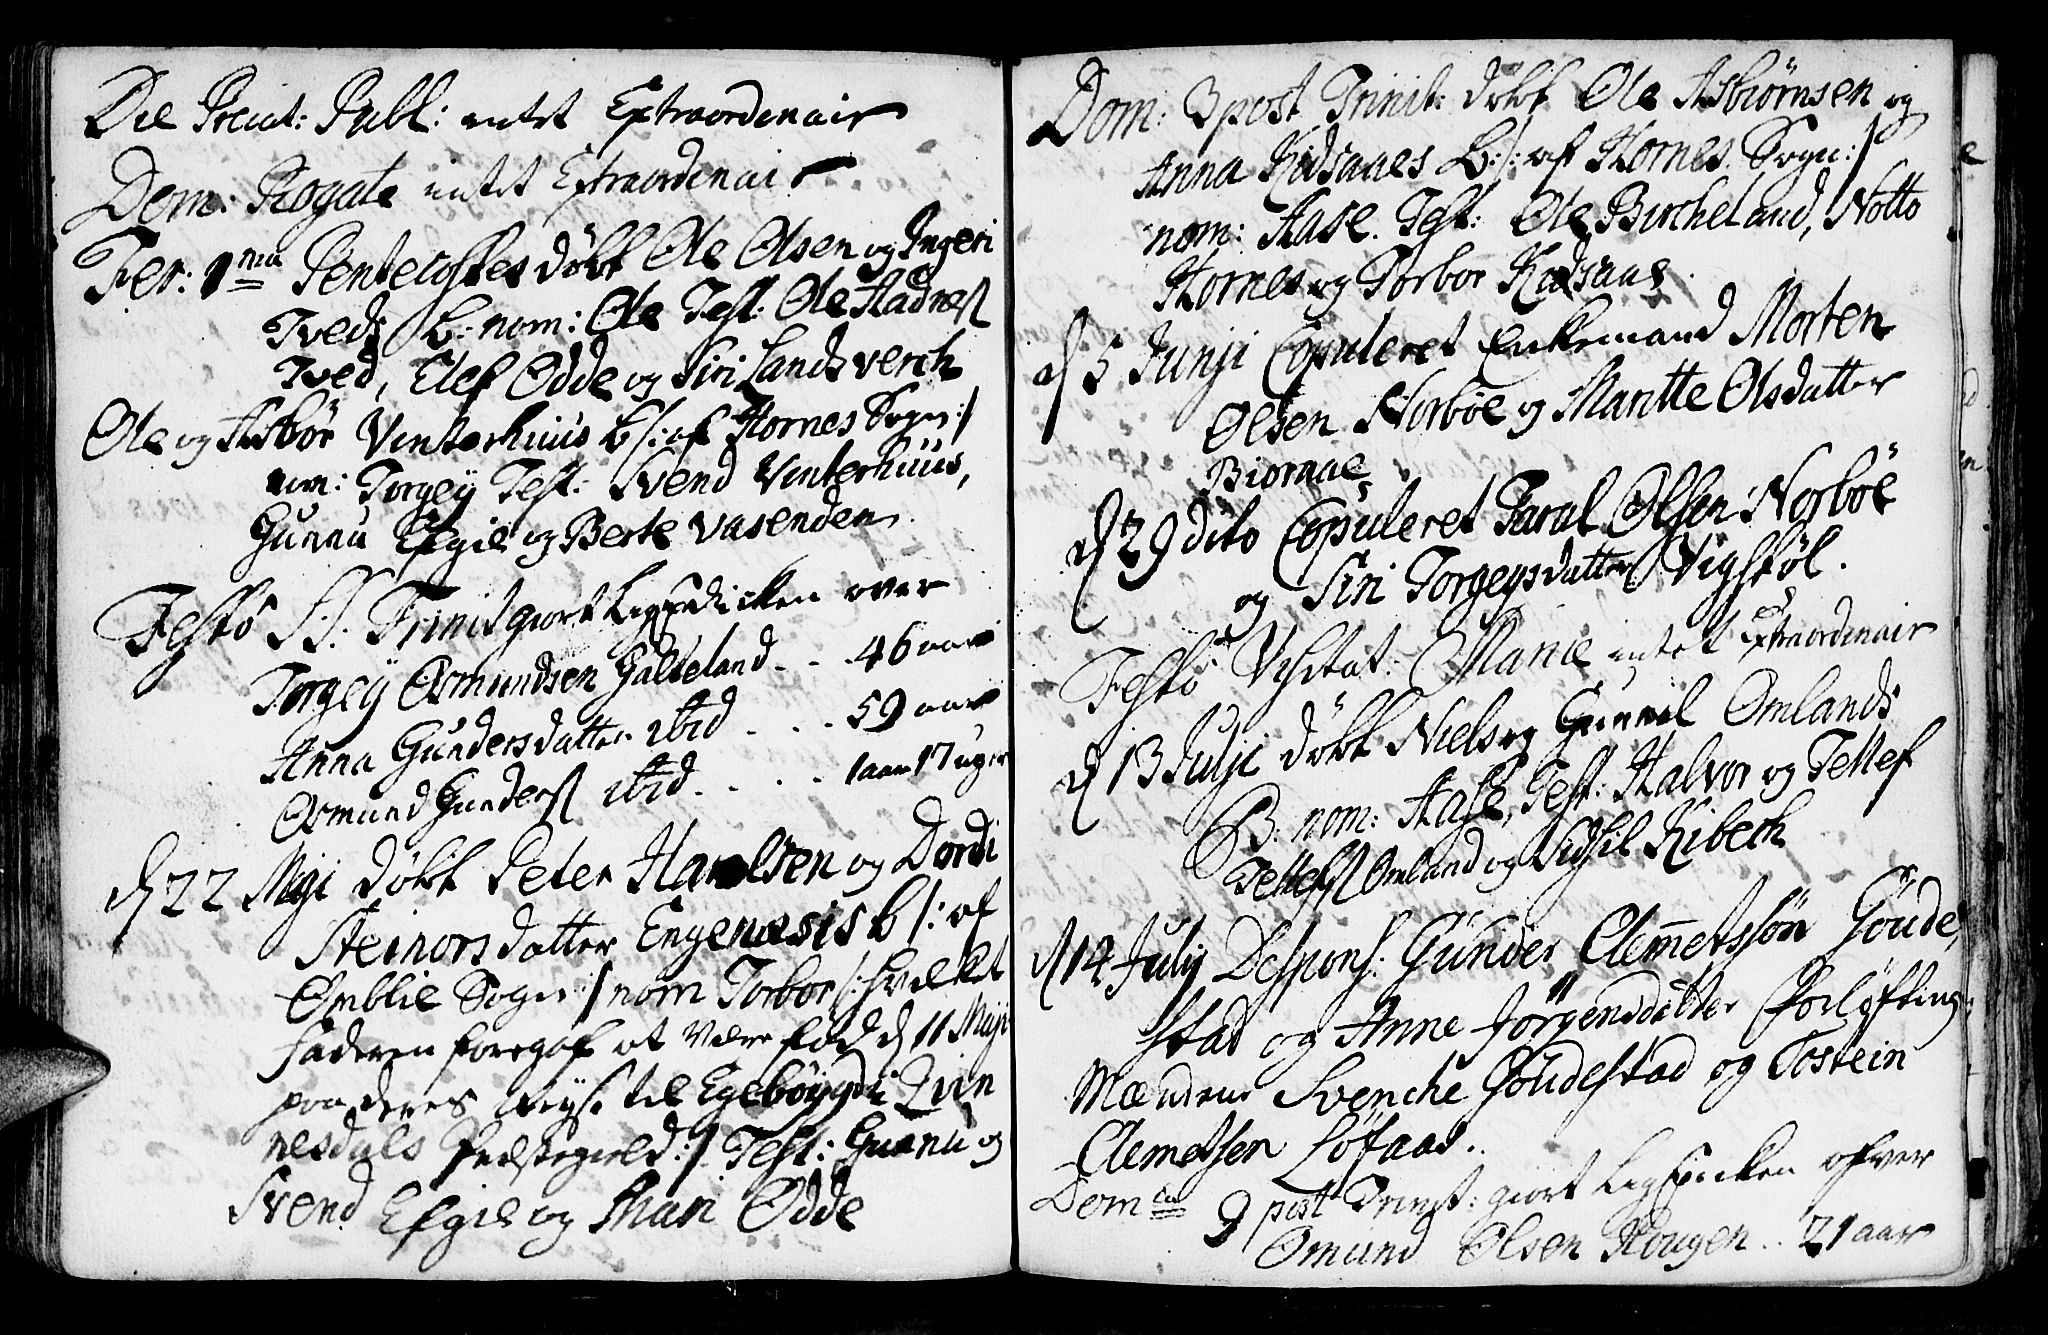 Die Precat: Publ: intet Extraordinair
Dom: Rogate intet Extraordinair
Fer: 1ma Pentecostes døbt Ole Olsen og Ingeri
Tveds B: nom: Ole Test: Ole Aadnesß
Tved, Elef Odde og Siri Landsverch
Ole og Asbør Vinterhuus b /: af Hornes Sogn :/
nom: Torgey Test: Svend Vinterhuus,
Gunnu Efgie og Berte Vasenden
Festo SS: Trinit giort LigPredicken over
Torgey Osmundsen Galteland . . . 46 aar
Anna Gundersdatter ibid . . . 59 aar
Osmund Gundersß ibid . . . . 1 aar 17 uger
d 22 Maji døbt Peter Haralsen og Dordi
Steinorsdatter Engenæsis b /: af
Omblie Sogn :/ nom Torbor /: hvilket
Faderen foregaf at være fød d 11 Maji
paa deres Reyse til Egebøygd i Qvin
nesdals Prestegield :/ Test: Gunnu og
Svend Efgie og Mari Odde
Dom: 3 post Trinit: døbt Ole Asbiørnsen og
Anna Kidsaaes B: /: af Hornes Sogn :/
nom: Aase. Test: Ole Bircheland, Notto
Hornes og Torbor Kidsaas
d 5 Junji Copuleret Enkemand Morten
Olsen Norbøe og Maritte Olsdatter
Biornae
d 29 dito Copuleret Taral Olsen Norbøe
og Siri Torgeysdatter Vigstøl.
Festo Visitat: Mariæ intet Extraordinair
d 13 Julji døbt Niels og Gunvil Omlands
B: nom: Aase, Test: Halvor og Tellef
Tellefsß Omland og Sidsil Kibech
d 14 Julij Despons: Gunder Clemetssøn Goude,
stad og Anne Jørgensdatter Forløftings
Mændene Svenche Goudestad og Tostein
Clemetsen Løfaas..
Dom ca 9 post Trinit: giort LigPredicken ofver
Omund Olsen Hougen .. 21 aar